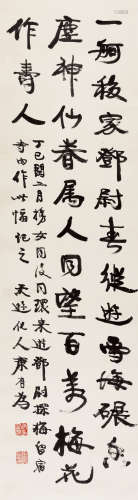 一舸移家鄧尉春縱遊雪海碾香
塵神仙眷属人同望百萬梅花
作壽人
丁巳閏二月携女同復同環來遊鄧尉探梅自寓
寺內作此幅記之 天遊化人康有為